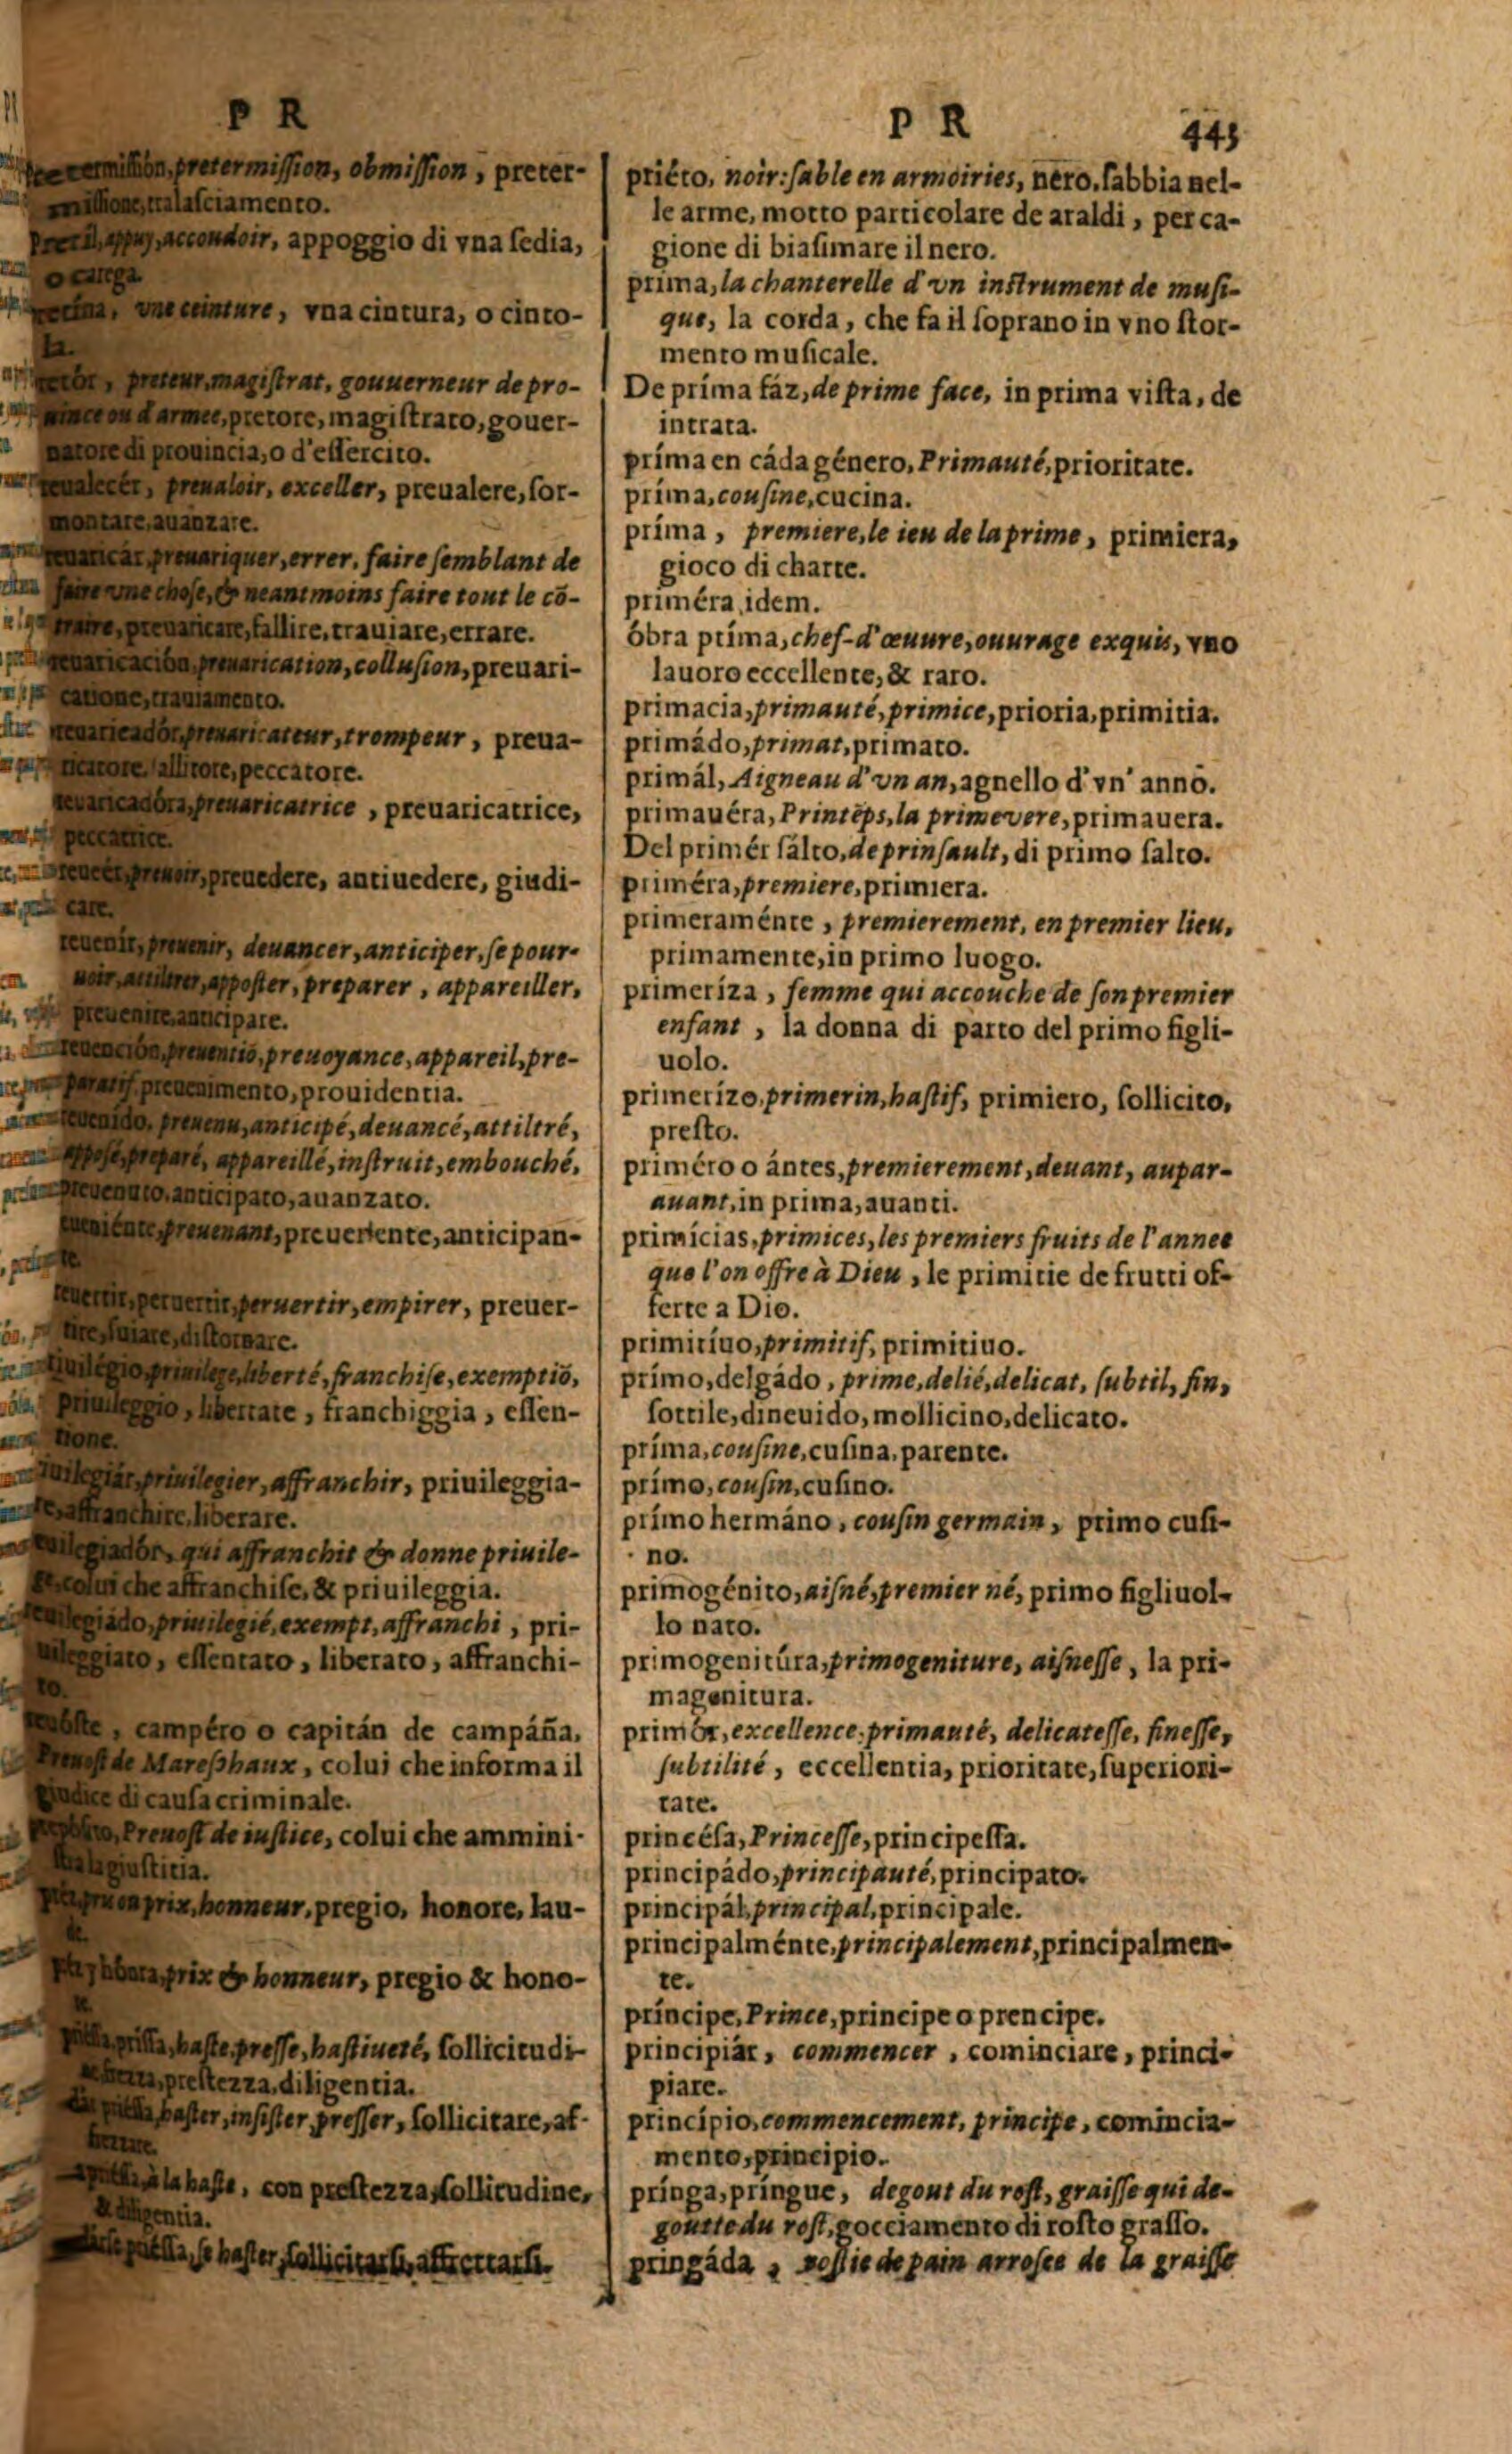 P R
pretermission, obmission, preter-
missione, tralasciamento.
accoudoir, appoggio di vna ſedia,
o carega.
vne ceinture, vna cintura, o cinto-
la.
preteur, magiſtrat, gouuerneur de pro-
uince ou d'armee, pretore, magiſtrato, gouer-
natore di prouincia, o d'eſſercito.
preualoir, exceller, preualere, ſor-
montare, auanzare.
preuariquer, errer, faire ſemblant de
faire vne choſe, & neantmoins faire tout le cõ-
traire, preuaricare, fallire, trauiare, errare.
preuarication, colluſion, preuari-
catione, trauiamento.
preuaricateur, trompeur, preua-
ricatore, fallitore, peccatore.
preuaricatrice, preuaricatrice,
peccatrice.
preuoir, preuedere, antiuedere, giudi-
care.
preuenir, deuancer, anticiper, ſe pour-
uoir, attiltrer, appoſter, preparer, appareiller,
preuenire, anticipare.
preuentiõ, preuoyance, appareil, pre-
paratif, preuenimento, prouidentia.
preuenu, anticipé, deuancé, attiltré,
appoſé, preparé, appareillé, inſtruit, embouché,
preuenuto, anticipato, auanzato.
preuenant, preuertente, anticipan-
te.
peruertir, peruertir, empirer, preuer-
tire, ſuiare, diſtornare.
priuilege, liberté, franchiſe, exemptiõ,
priuileggio, libertate, franchiggia, eſſen-
tione.
priuilegier, affranchir, priuileggia-
re, affranchire, liberare.
qui affranchit & donne priuile-
ge, colui che affranchiſe, & priuileggia.
priuilegié, exempt, affranchi, pri-
uileggiato, eſſentato, liberato, affranchi-
to.
campéro o capitán de campáña,
Preuoſt de Mareſchaux, colui che informa il
giudice di cauſa criminale.
Preuoſt de iuſtice, colui che ammini-
ſtra la giuſtitia.
prix, honneur, pregio, honore, lau-
de.
prix & honneur, pregio & hono-
re.
priſſa, haſte, preſſe, haſtiueté, ſollicitudi-
preſtezza, diligentia.
haſter, inſiſter, preſſer, ſollicitare, af-
frettare.
à la haſte, con preſtezza, ſollitudine,
& diligentia.
ſe haſter, ſollicitarſi, affrettarſi.
P R 445
priéto, noir: ſable en armoiries, nero, ſabbia nel-
le arme, motto particolare de araldi, per ca-
gione di biaſimare il nero.
príma, la chanterelle d'vn inſtrument de muſi-
que, la corda, che fa il ſoprano in vno ſtor-
mento muſicale.
De príma fáz, de prime face, in prima viſta, de
intrata.
príma en cáda género, Primauté, prioritate.
príma, couſine, cucina.
príma, premiere, le ieu de la prime, primiera,
gioco di charte.
priméra, idem.
óbra príma, chef-d'œuure, ouurage exquis, vno
lauoro eccellente, & raro.
primacia, primauté, primice, prioria, primitia.
primádo, primat, primato.
primál, Aigneau d'vn an, agnello d'vn' anno.
primauéra, Printẽps, la primevere, primauera.
Del primér ſálto, de prinſault, di primo ſalto.
priméra, premiere, primiera.
primeraménte, premierement, en premier lieu,
primamente, in primo luogo.
primeríza, femme qui accouche de ſon premier
enfant, la donna di parto del primo figli-
uolo.
primerízo, primerin, haſtif, primiero, ſollicito,
preſto.
priméro o ántes, premierement, deuant, aupar-
auant, in prima, auanti.
primícias, primices, les premiers fruits de l'annee
que l'on offre à Dieu, le primitie de frutti of-
ferte a Dio.
primitíuo, primitif, primitiuo.
prímo, delgádo, prime, delié, delicat, ſubtil, fin,
ſottile, dineuido, mollicino, delicato.
príma, couſine, cuſina, parente.
prímo, couſin, cuſino.
prímo hermáno, couſin germain, primo cuſi-
no.
primogénito, aiſné, premier né, primo figliuol-
lo nato.
primogenitúra, primogeniture, aiſneſſe, la pri-
magenitura.
primór, excellence, primauté, delicateſſe, fineſſe,
ſubtilité, eccellentia, prioritate, ſuperiori-
tate.
princéſa, Princeſſe, principeſſa.
principádo, principauté, principato.
principál, principal, principale.
principalménte, principalement, principalmen-
te.
príncipe, Prince, principe o prencipe.
principiár, commencer, cominciare, princi-
piare.
princípio, commencement, principe, comincia-
mento, principio.
prínga, príngue, degout du roſt, graiſſe qui de-
goutte du roſt, gocciamento di roſto graſſo.
pringáda, roſtie de pain arroſee de la graiſſe